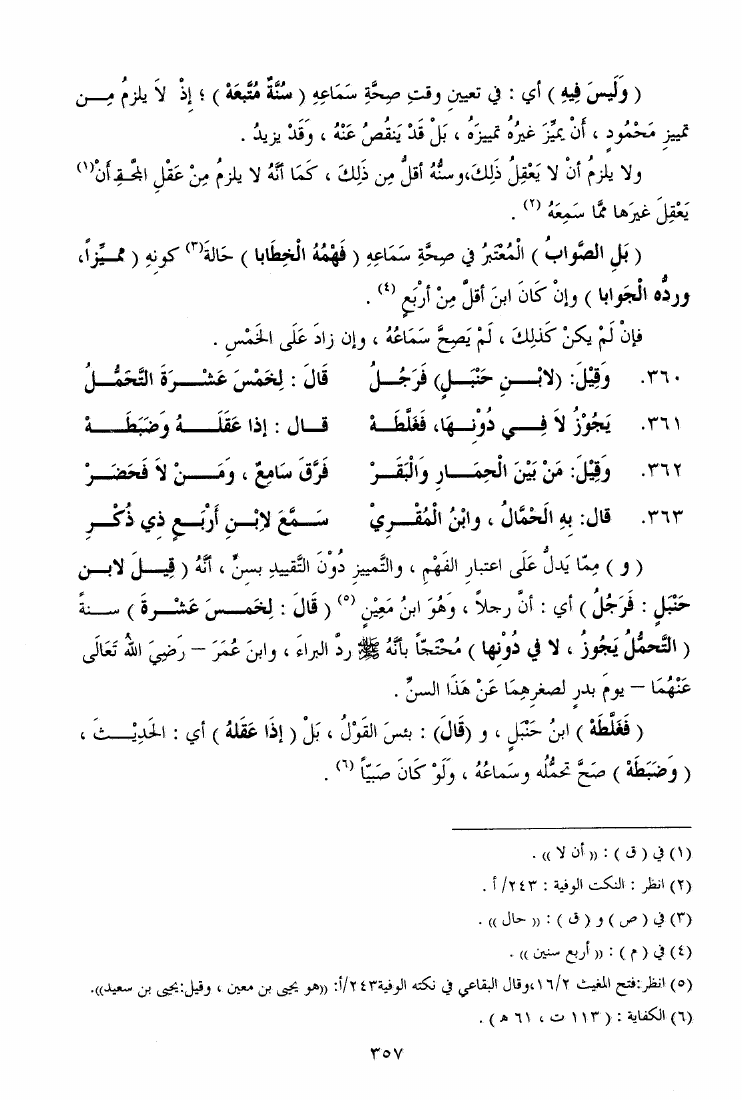 ( وَلَيسَ فِيهِ ) أي : في تعيينِ وقتِ صِحَّةِ سَمَاعِهِ ( سُنَّةٌ مُتَّبَعَهْ ) ؛ إذْ لاَ يلزمُ مِـن
تمييزِ مَحْمُودٍ ، أنْ يميِّزَ غيرُهُ تمييزَهُ ، بَلْ قَدْ يَنقُصُ عَنْهُ ، وقَدْ يزيدُ .
ولا يلزمُ أنْ لا يَعْقِلُ ذَلِكَ،وسنُّهُ أقلُّ مِن ذَلِكَ ، كَمَا أنَّهُ لا يلزمُ مِنْ عَقْلِ المَجَّةِ أنْ(١)
يَعْقِلَ غيرَها ممَّا سَمِعَهُ (٢) .
( بَلِ الصَّوابُ ) الْمُعْتَبرُ في صِحَّةِ سَمَاعِهِ ( فَهْمُهُ الْخِطَابا ) حَالةَ(٣) كونِهِ ( مـميِّزاً،
وردُّه الْجَوابا ) وإنْ كَانَ ابنَ أقلَّ مِنْ أرْبَعٍ (٤) .
فإنْ لَمْ يكنْ كَذلِكَ ، لَمْ يَصِحَّ سَمَاعُهُ ، وإن زادَ عَلَى الخَمْسِ .
٣٦٠. وَقِيْلَ: (لابْـنِ حَنْبَـلٍ) فَرَجُـلُ قَالَ : لِخَمْسَ عَشْـرَةَ التَّحَمُّـلُ
٣٦١. يَجُوْزُ لاَ فِـي دُوْنِـهَا، فَغَلَّطَهْ قـال : إذا عَقَلَــهُ وَضَبَطَــهْ
٣٦٢. وَقِيْلَ: مَنْ بَيْنَ الْحِمَـارِ وَالْبَقَـرْ فَرَّقَ سَامِعٌ ، وَمَـنْ لاَ فَحَضَـرْ
٣٦٣. قال: بِهِ الْحَمَّالُ ، وابْنُ الْمُقْـرِيْ سَـمَّعَ لاِبْـنِ أَرْبَـعٍ ذِي ذُكْـرِ
( و ) مِمّا يَدلُّ عَلَى اعتبارِ الفَهْمِ ، والتَّمييزِ دُوْنَ التَّقييدِ بسِنٍّ ، أنَّهُ ( قِيـلَ لابـن
حَنْبَلٍ : فَرَجُلُ ) أي : أنَّ رجلاً ، وَهُوَ ابنُ مَعِيْنٍ (٥) ( قَالَ : لِخَمـسَ عَشْـرةَ ) سـنةً
( التَّحمُّلُ يَجُوزُ ، لا في دُوْنِها ) مُحْتَجّاً بأنَّهُ ﷺ ردَّ البراءَ ، وابنَ عُمَرَ – رَضِيَ اللهُ تَعَالَى
عَنْهُمَا – يومَ بدرٍ لصغرِهِمَا عَنْ هَذَا السنِّ .
( فَغَلَّطَهْ ) ابنُ حَنْبَلٍ ، و (قَالَ) : بئسَ القَوْلُ ، بَلْ ( إذَا عَقَلَهُ ) أي : الحَدِيْـثَ ،
( وَضَبَطَهْ ) صَحَّ تحمُّلُه وسَماعُهُ ، ولَوْ كَانَ صَبِيّاً (٦) .
(١) في ( ق ) : (( أن لا )) .
(٢) انظر : النكت الوفية : ٢٤٣/ أ .
(٣) في ( ص ) و ( ق ) : (( حال )) .
(٤) في ( م ) : (( أربع سنين )) .
(٥) انظر:فتح المغيث ١٦/٢،وقال البقاعي في نكته الوفية٢٤٣/أ: ((هو يحيى بن معين ، وقيل:يحيى بن سعيد)).
(٦) الكفاية : ( ١١٣ ت ، ٦١ هـ ) .
٣٥٧